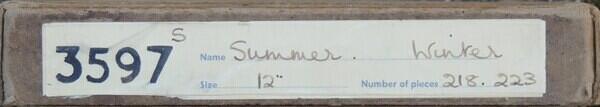 3597 S Name Summer. Winter
Size 12" Number of pieces 218. 223